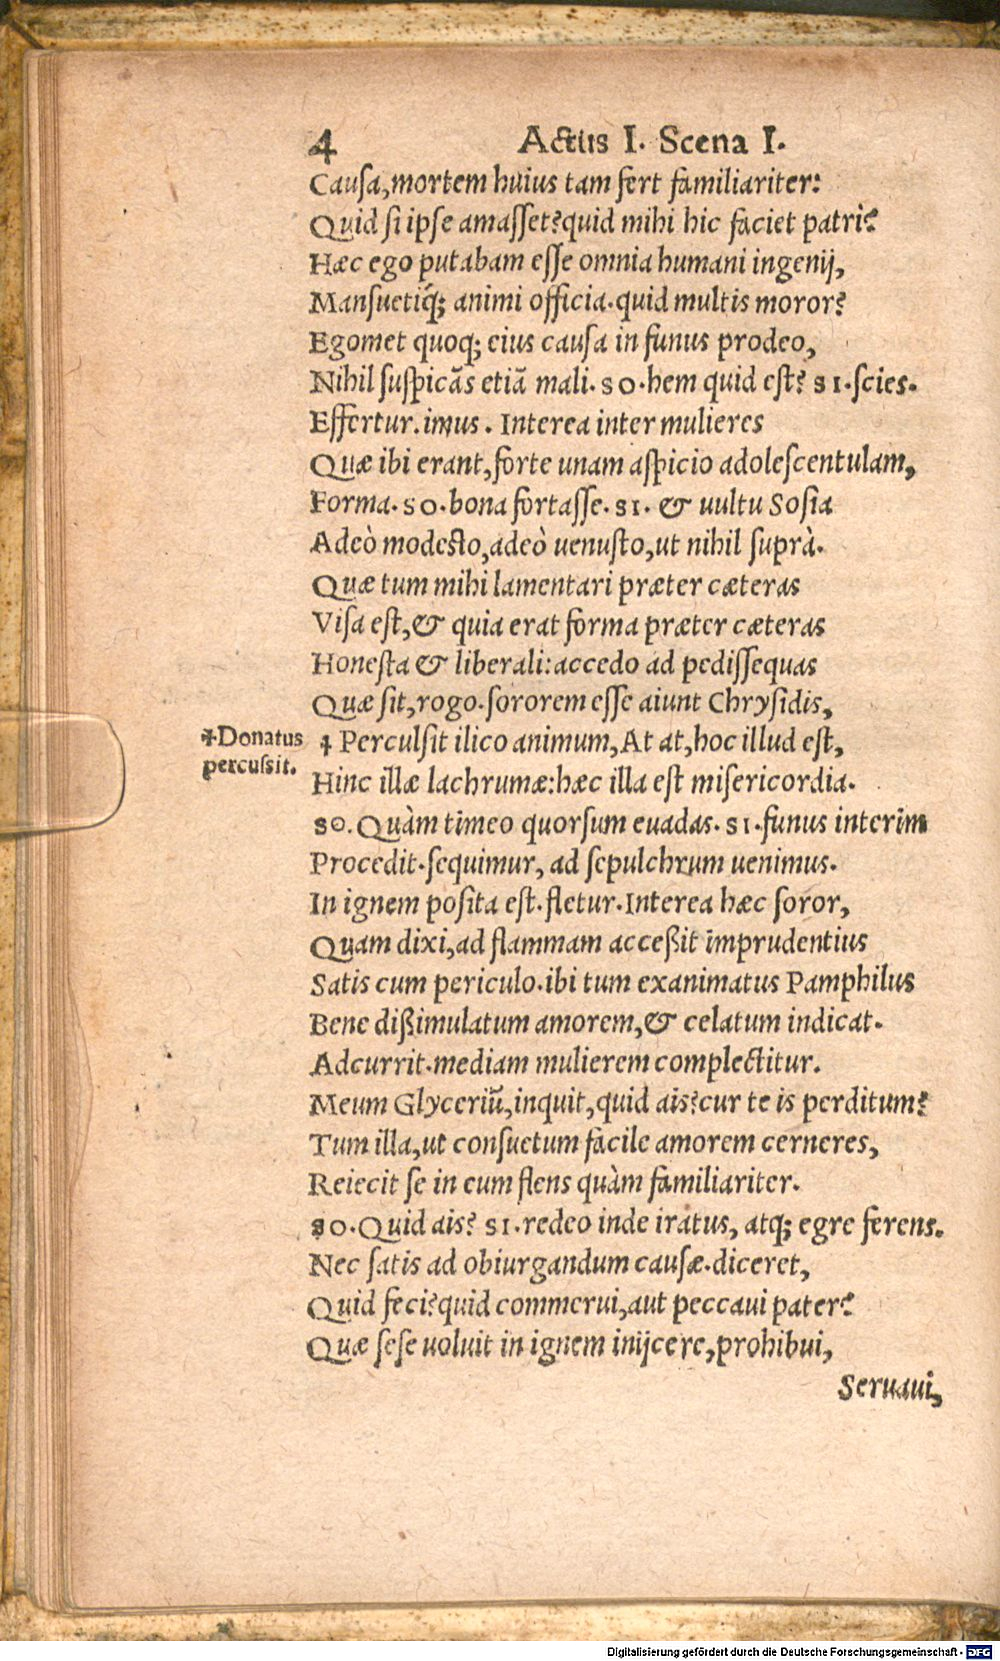 4 Actus I. Scena I.
Causa, mortem huius tam fert familiariter:
Quid si ipse amasset? quid mihi hic faciet patri?
Hæc ego putabam esse omnia humani ingenij,
Mansuetiq́; animi officia. quid multis moror?
Egomet quoq; eius causa in funus prodeo,
Nihil suspicãs etiã mali. SO. hem quid est? SI. scies.
Effertur. imus. Interea inter mulieres
Quæ ibi erant, forte unam aspicio adolescentulam,
Forma. SO. bona fortasse. SI. & uultu Sosia
Adeò modesto, adeò uenusto, ut nihil suprà.
Quæ tum mihi lamentari præter cæteras
Visa est, & quia erat forma præter cæteras
Honesta & liberali: accedo ad pedissequas
Quæ sit, rogo. sororem esse aiunt Chrysidis,
✢Donatus
percussit.
✢ Perculsit ilico animum, At at, hoc illud est,
Hinc illæ lachrumæ: hæc illa est misericordia.
SO. Quàm timeo quorsum euadas. SI. funus interim
Procedit. sequimur, ad sepulchrum uenimus.
In ignem posita est. fletur. Interea hæc soror,
Quam dixi, ad flammam acceßit imprudentius
Satis cum periculo. ibi tum exanimatus Pamphilus
Bene dißimulatum amorem, & celatum indicat.
Adcurrit. mediam mulierem complectitur.
Meum Glyceriũ, inquit, quid ais? cur te is perditum?
Tum illa, ut consuetum facile amorem cerneres,
Reiecit se in eum flens quàm familiariter.
SO. Quid ais? SI. redeo inde iratus, atq; egre ferens.
Nec satis ad obiurgandum causæ. diceret,
Quid feci? quid commerui, aut peccaui pater?
Quæ sese uoluit in ignem inijcere, prohibui,
Seruaui,
Digitalisierung gefördert durch die Deutsche Forschungsgemeinschaft - DFG